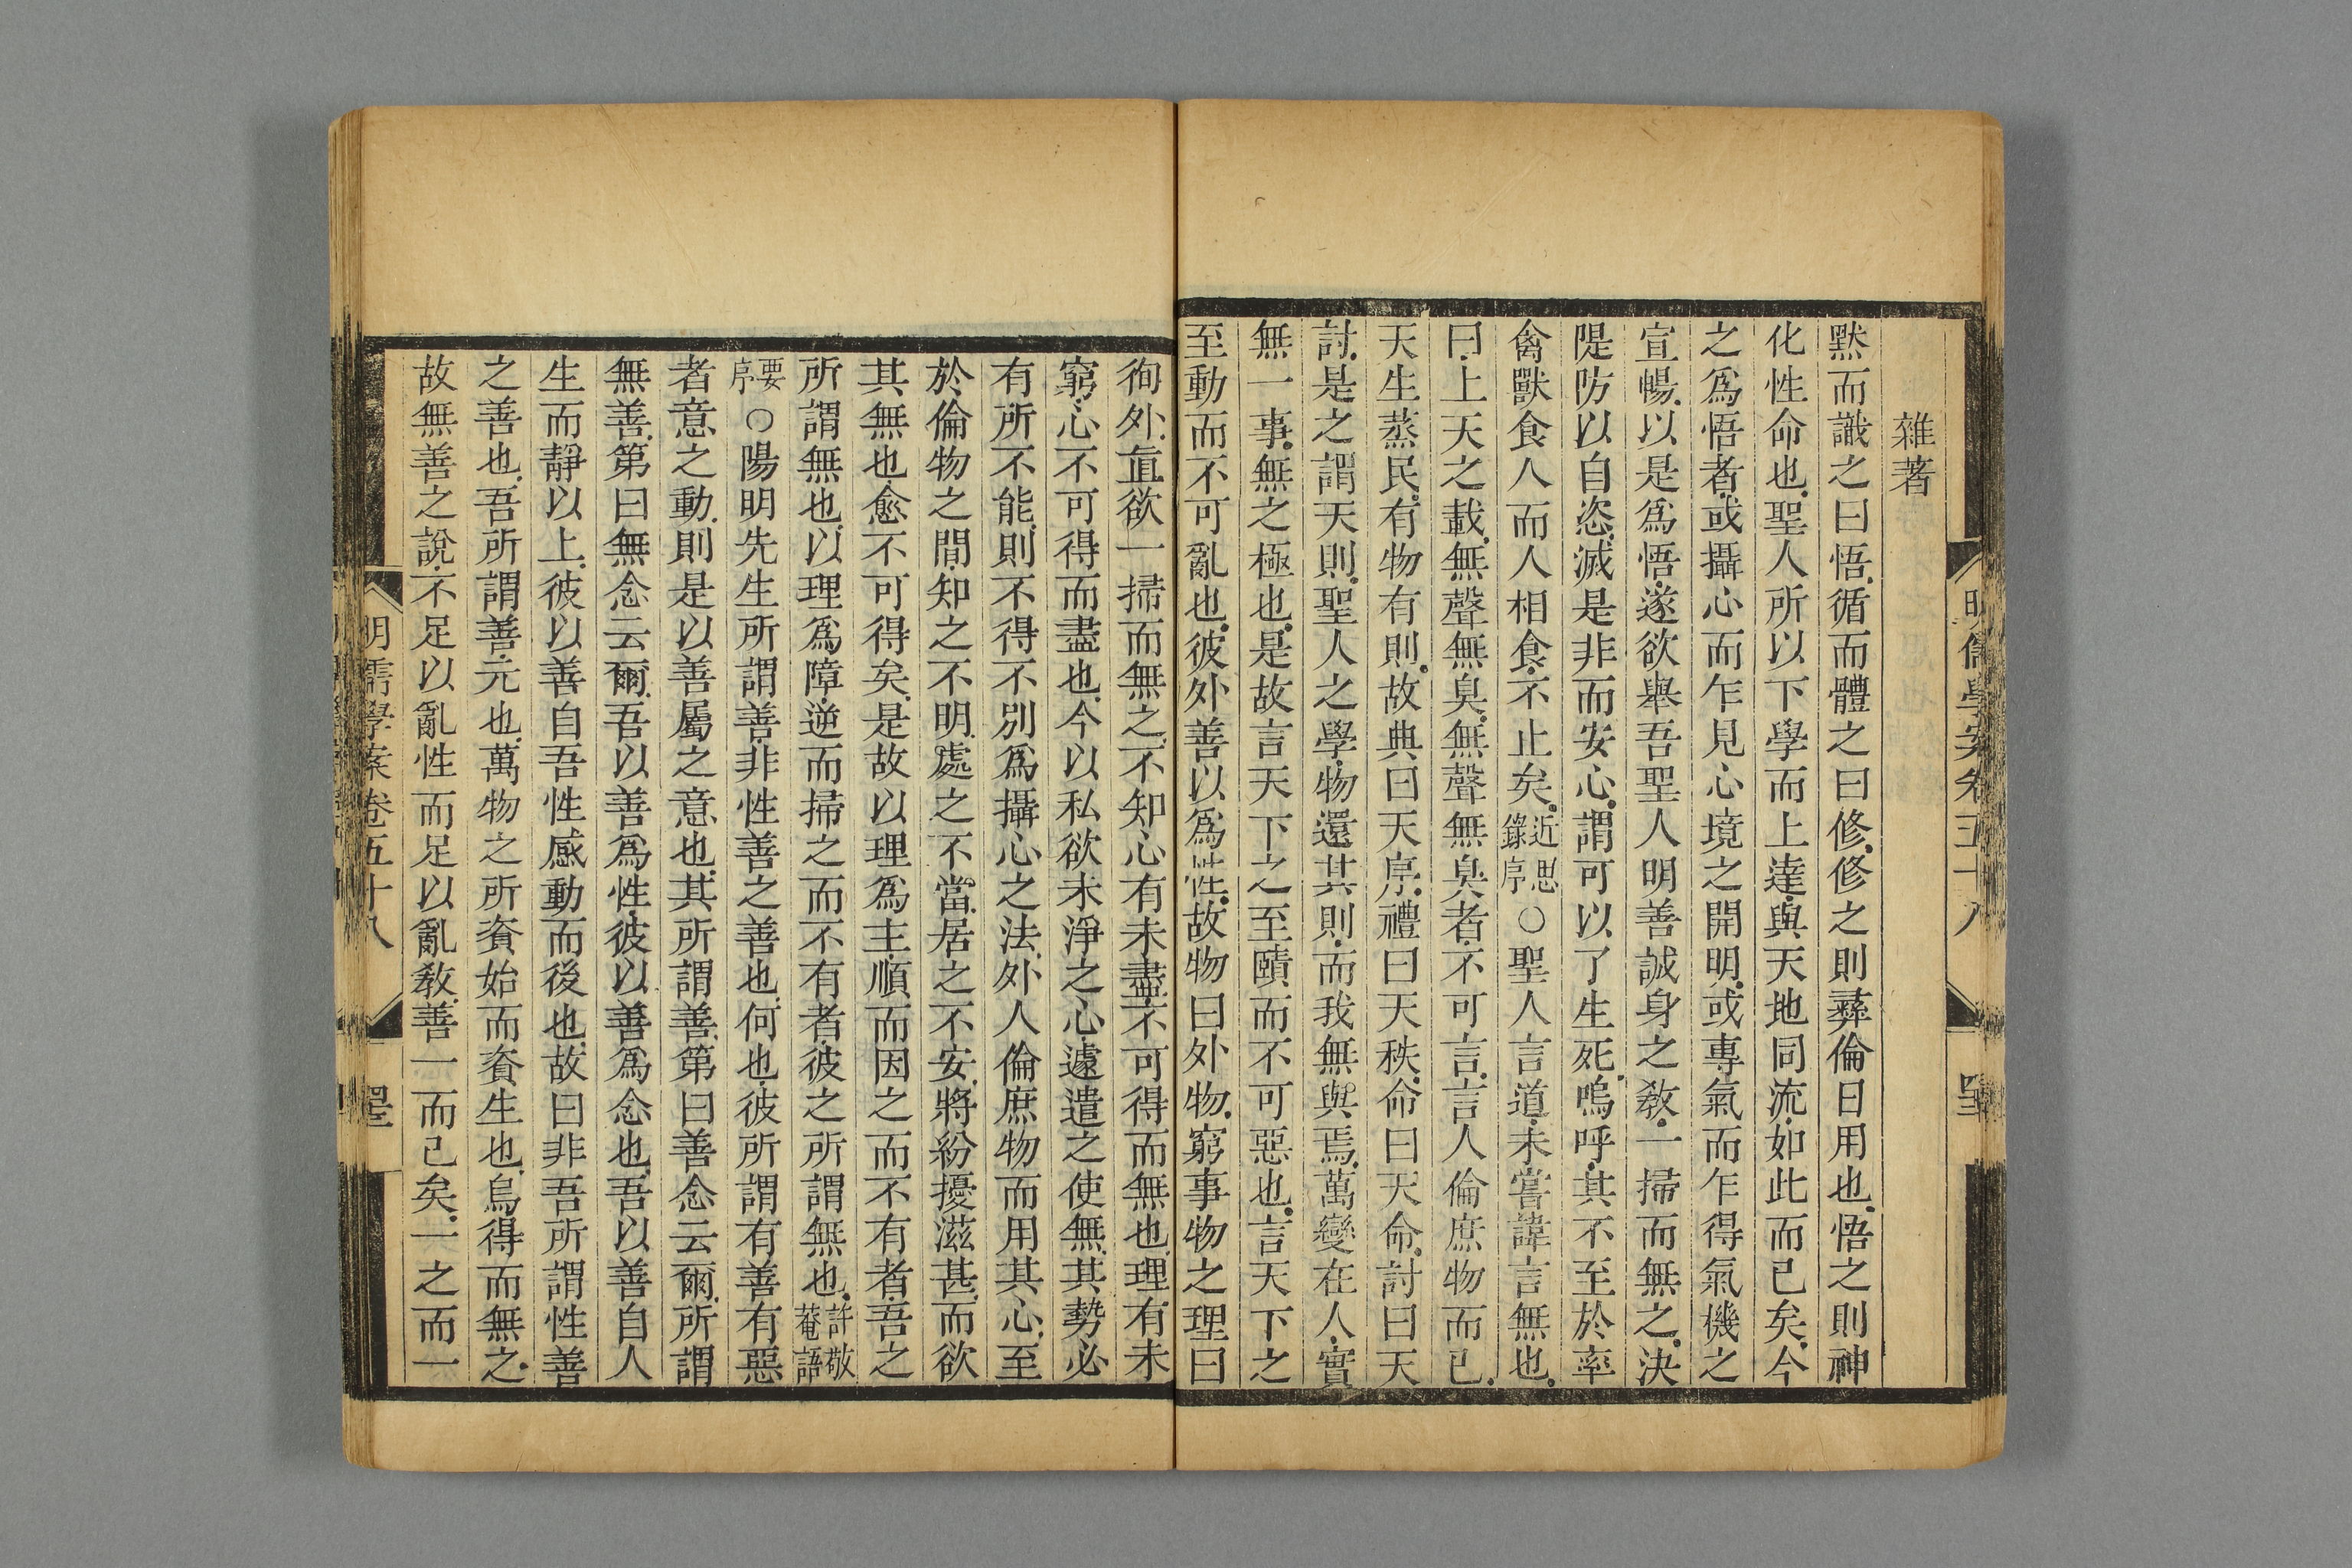 雜著
黙而識之曰悟循而體之曰修修之則彞倫日用也悟之則神
化性命也聖人所以下學而上達與天地同流如此而已矣今
之爲悟者或攝心而乍見心境之開明或專氣而乍得氣機之
宣暢以是爲悟遂欲舉吾聖人明善誠身之敎一掃而無之決
隄防以自恣滅是非而安心謂可以了生死嗚呼其不至於率
禽獸食人而人相食不止矣近思錄序○聖人言道未嘗諱言無也
曰上天之載無聲無臭無聲無臭者不可言言人倫庶物而已
天生蒸民有物有則故典曰天序禮曰天秩命曰天命討曰天
討是之謂天則聖人之學物還其則而我無與焉萬變在人實
無一事無之極也是故言天下之至賾而不可惡也言天下之
至動而不可亂也彼外善以爲性故物曰外物窮事物之理曰
徇外直欲一掃而無之不知心有未盡不可得而無也理有未
窮心不可得而盡也今以私欲未淨之心遽遣之使無其勢必
有所不能則不得不別爲攝心之法外人倫庶物而用其心至
於倫物之間知之不明處之不當居之不安將紛擾滋甚而欲
其無也愈不可得矣是故以理爲主順而因之而不有者吾之
所謂無也以理爲障逆而掃之而不有者彼之所謂無也許敬菴語
要序○陽明先生所謂善非性善之善也何也彼所謂有善有惡
者意之動則是以善屬之意也其所謂善第曰善念云爾所謂
無善第曰無念云爾吾以善爲性彼以善爲念也吾以善自人
生而靜以上彼以善自吾性感動而後也故曰非吾所謂性善
之善也吾所謂善元也萬物之所資始而資生也烏得而無之
故無善之說不足以亂性而足以亂敎善一而已矣一之而一
明儒學案卷五十八
明儒學案卷五十八